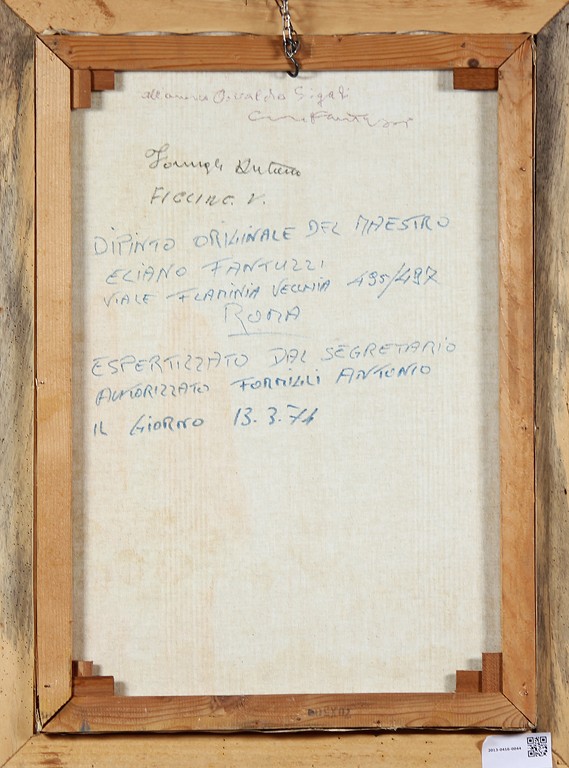 Osvaldo Gigali
Fantuzzi
Antonio
FIGLINE V.
DIPINTO ORIGINALE DEL MAESTRO
ELIANO FANTUZZI
VIALE FLAMINIA VECCHIA 495/497
ROMA
ESPERTIZZATO DAL SEGRETARIO
AUTORIZZATO FORMIGLI ANTONIO
IL GIORNO 13.3.74